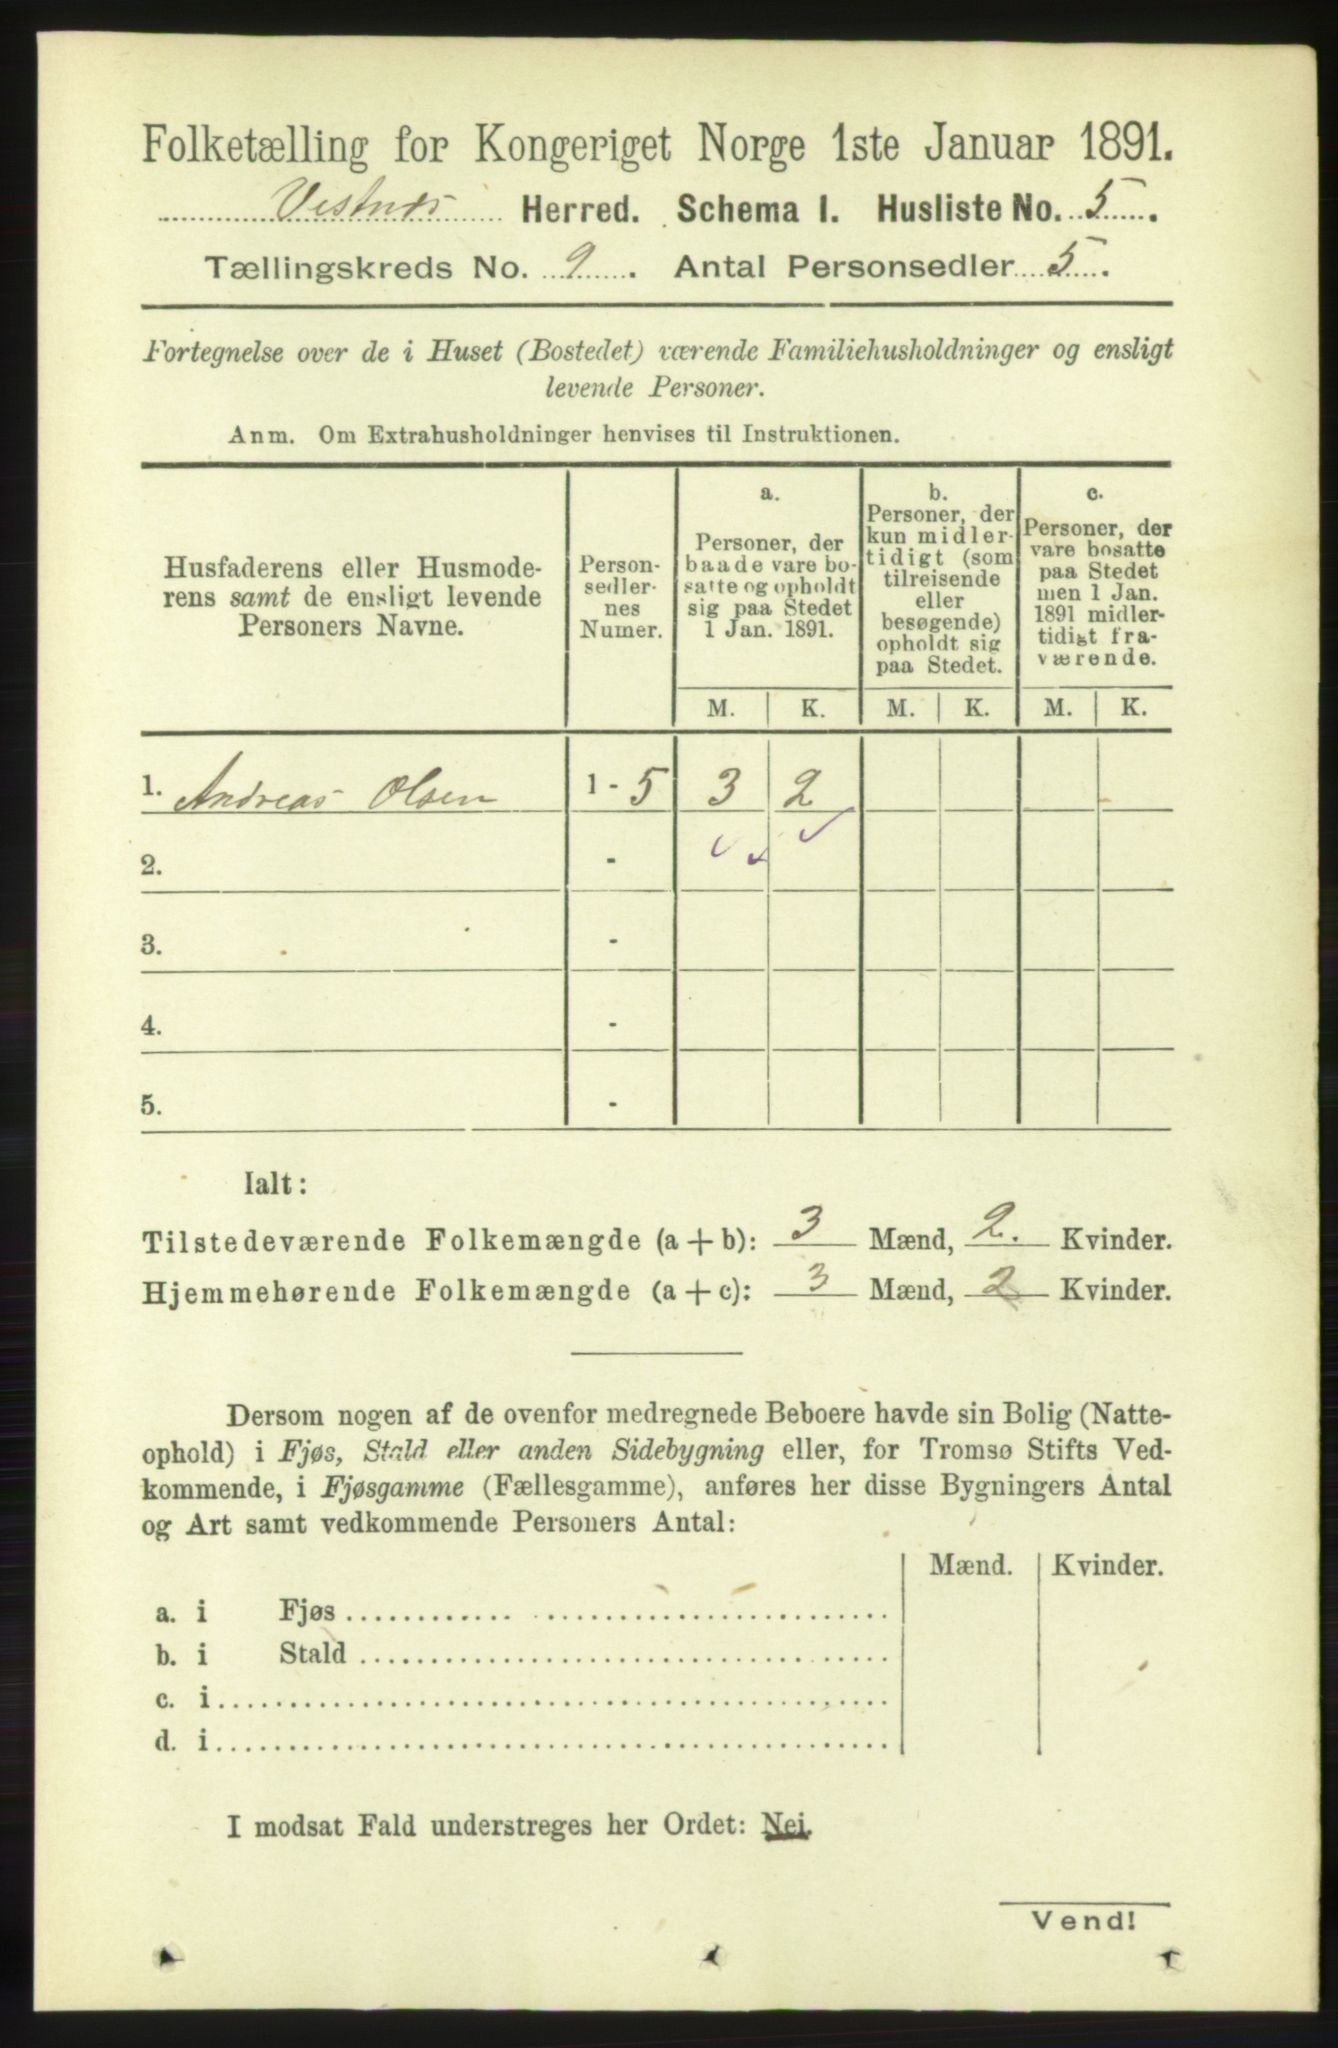 Folketælling for Kongeriget Norge 1ste Januar 1891.
Vestnes Herred. Schema I. Husliste No. 5.
Tællingskreds No. 9. Antal Personsedler 5.
Fortegnelse over de i Huset (Bostedet) værende Familiehusholdninger og ensligt
levende Personer.
Anm. Om Extrahusholdninger henvises til Instruktionen.
Husfaderens eller Husmode-
rens samt de ensligt levende
Personers Navne.
Person-
sedler-
nes
Numer.
a.
Personer, der
baade vare bo-
satte og opholdt
sig paa Stedet
1 Jan. 1891.
b.
Personer, der
kun midler-
tidigt (som
tilreisende
eller
besøgende)
opholdt sig
paa Stedet.
c.
Personer, der
vare bosatte
paa Stedet
men 1 Jan.
1891 midler-
tidigt fra-
værende.
M. K. M. K. M. K.
1. Andreas Olsen 1 - 5 3 2
2. -
3. -
4. -
5. -
Ialt:
Tilstedeværende Folkemængde (a + b): 3 Mænd, 2. Kvinder.
Hjemmehørende Folkemængde (a + c): 3 Mænd, 2 Kvinder.
Dersom nogen af de ovenfor medregnede Beboere havde sin Bolig (Natte-
ophold) i Fjøs, Stald eller anden Sidebygning eller, for Tromsø Stifts Ved-
kommende, i Fjøsgamme (Fællesgamme), anføres her disse Bygningers Antal
og Art samt vedkommende Personers Antal:
Mænd. Kvinder.
a. i Fjøs
b. i Stald
c. i
d. i
I modsat Fald understreges her Ordet: Nei.
Vend!